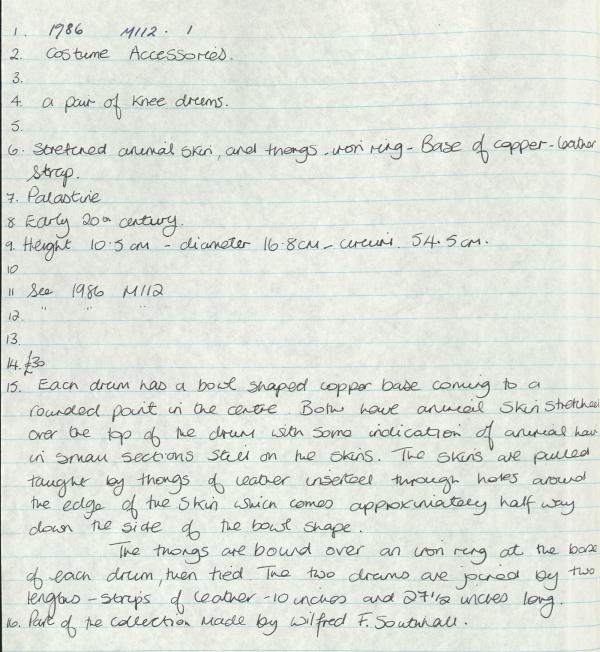 1. 1986 M112. 1
2. Costume Accessories.
3.
4. a pair of knee drums.
5.
6. Stretched animal skin, and thongs - iron ring - Base of copper - leather
strap.
7. Palastine
8 Early 20th century.
9. Height 10.5 cm - diameter 16.8cm - circum. 54.5cm.
10
11 See 1986 M112
12. " " "
13.
14. £30
15. Each drum has a bowl shaped copper base coming to a
rounded point in the centre Both have animal skin stretched
over the top of the drum with some indication of animal hair
in small sections still on the skins. The skins are pulled
taught by thongs of leather inserted through holes around
the edge of the skin which comes approximately half way
down the side of the bowl shape.
The thongs are bound over an iron ring at the base
of each drum, then tied. The two drums are joined by two
lengths - straps of leather - 10 inches and 27 1/2 inches long.
16. Part of the collection made by Wilfred F. Southall.